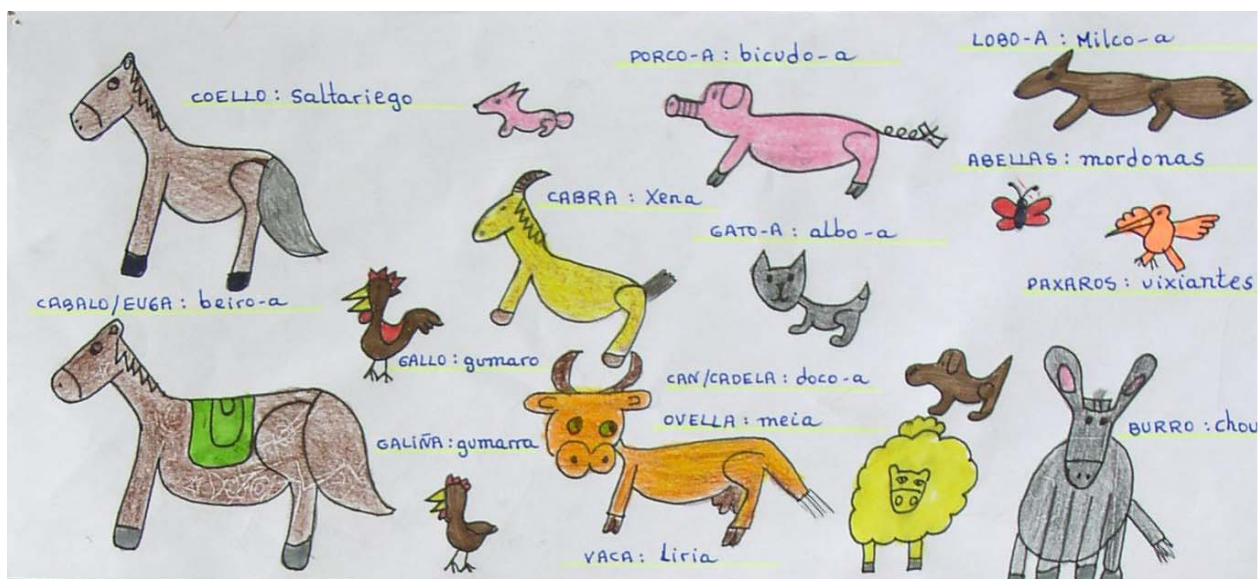 LOBO-A : Milco-a
PORCO-A : bicudo-a
COELLO : Saltariego
ABELLAS : mordonas
CABRA : Xena
GATO-A : albo-a
PAXAROS : vixiantes
CABALO/EUGA : beiro-a
GALLO : gumaro
CAN/CADELA : doco-a
OVELLA : meia
BURRO : chou
GALIÑA : gumarra
VACA : Liria